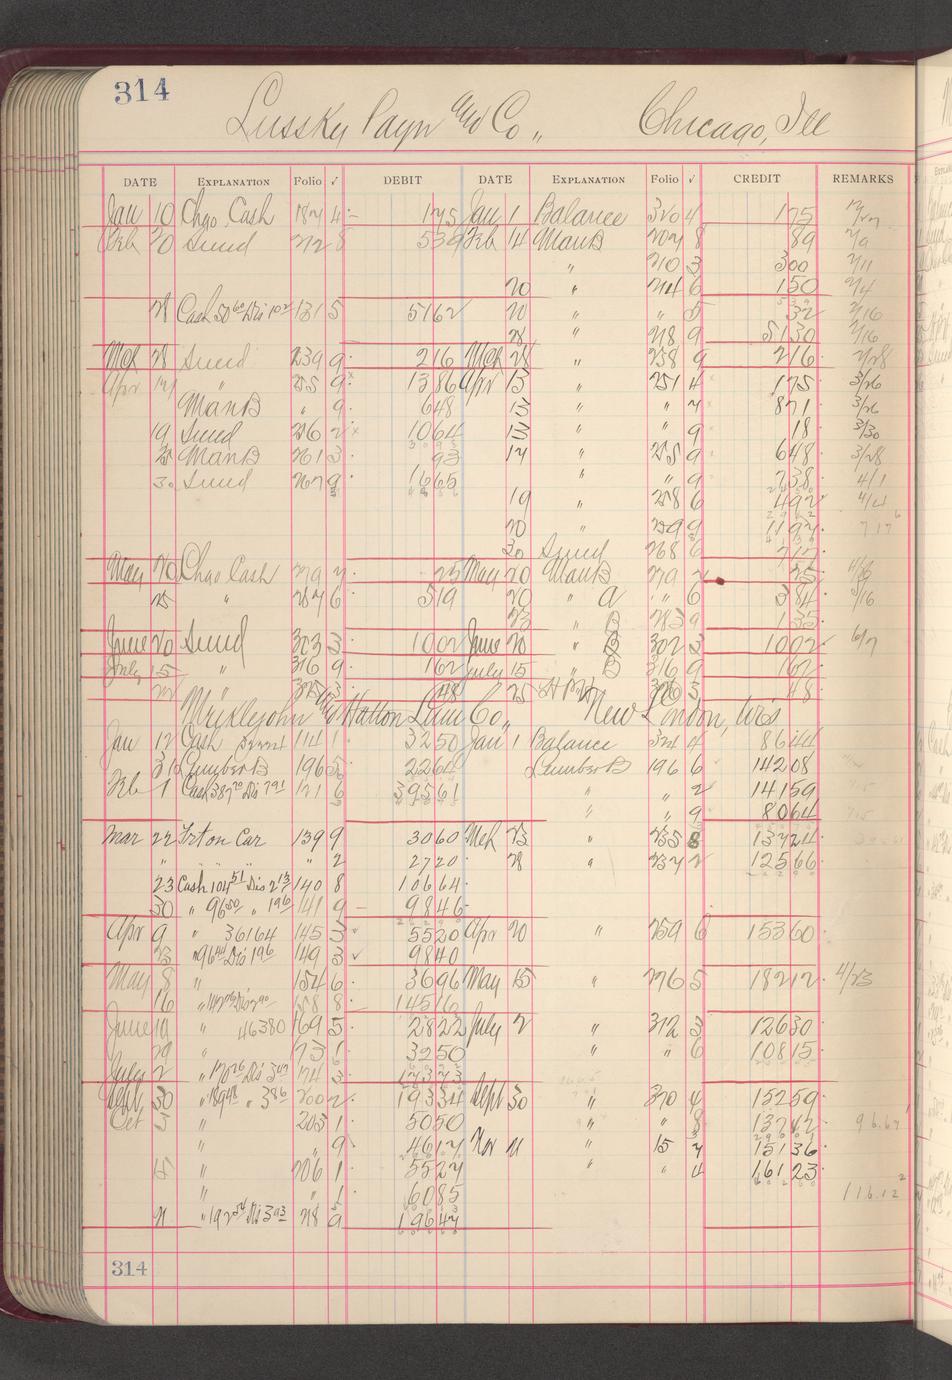 314
Lussky Payn and Co., Chicago, Ill
DATE EXPLANATION Folio √ DEBIT DATE EXPLANATION Folio √ CREDIT REMARKS
Jan 10 Chgo. Cash 187 4 175 Jan 1 Balance 320 4 175
Feb 20 Sund 212 8 539 Feb 14 ManB 207 8 89 2/9
" 210 3 300 2/11
20 " 214 6 150 2/4
21 Cash 50 60 Dis 1 02 131 5 5162 20 " " 5 32 2/16
28 " 218 9 5130 2/16
Mch 28 Sund 239 9 216 Mch 28 " 238 9 216 2/28
Apr 14 " 255 9 1386 Apr 13 " 251 4 175 3/26
ManB " 9 648 13 " " 7 871 3/26
19 Sund 256 2 1064 13 " " 9 18 3/30
25 ManB 261 3 93 17 " 255 9 648 3/28
30 Sund 267 9 1665 " " 9 738 4/1
19 " 258 6 492 4/4
20 " 259 9 1197 717
30 Sund 268 6 717
May 20 Chgo Cash 279 7 25 May 20 ManB 279 7 25
25 " 287 6 519 20 " a " 6 384 5/16
23 " B 283 9 135
June 20 Sund 303 3 1002 June 20 " B 302 3 1002 6/7
July 15 " 316 9 162 July 15 " B 316 9 162
" 3 48 25 3 48
Hatton Lum Co., New London, Wis
Jan 12 Cash 114 1 3250 Jan 1 Balance 324 4 8644
31 LumberB 196 5 2264 LumberB 196 6 14208
Feb 1 Cash 387 70 Dis 7 91 121 6 39561 " " 2 14159
" " 9 8064
Mar 22 Frt on Car 139 9 3060 Mch 23 " 235 8 13724
" " " " " 2 2720 28 " 237 2 12566
23 Cash 104 51 Dis 2 13 140 8 10664
30 " 96 50 " 1 96 141 9 9846
Apr 9 " 36164 145 3 5520 Apr 20 " 259 6 15360
23 " 96 44 Dis 1 96 149 3 9840
May 8 " 154 6 3696 May 15 " 276 5 18212 4/23
16 " 142 26 Dis 2 90 158 8 14516
June 19 " 46380 169 5 2822 July 2 " 312 3 12630
29 " 173 1 3250 " " 6 10815
July 2 " 170 26 Dis 3 47 174 3 17373
Sept 30 " 189 48 " 3 86 200 2 19334 Sept 30 " 370 4 15259
Oct 5 " 203 1 5050 " " 8 13742 96.67
" " 9 4617 Nov 11 " 15 7 15136
15 " 206 1 5527 " " 4 16123
" " 1 6085 116.12
21 " 192 54 Dis 3 93 218 9 19647
314